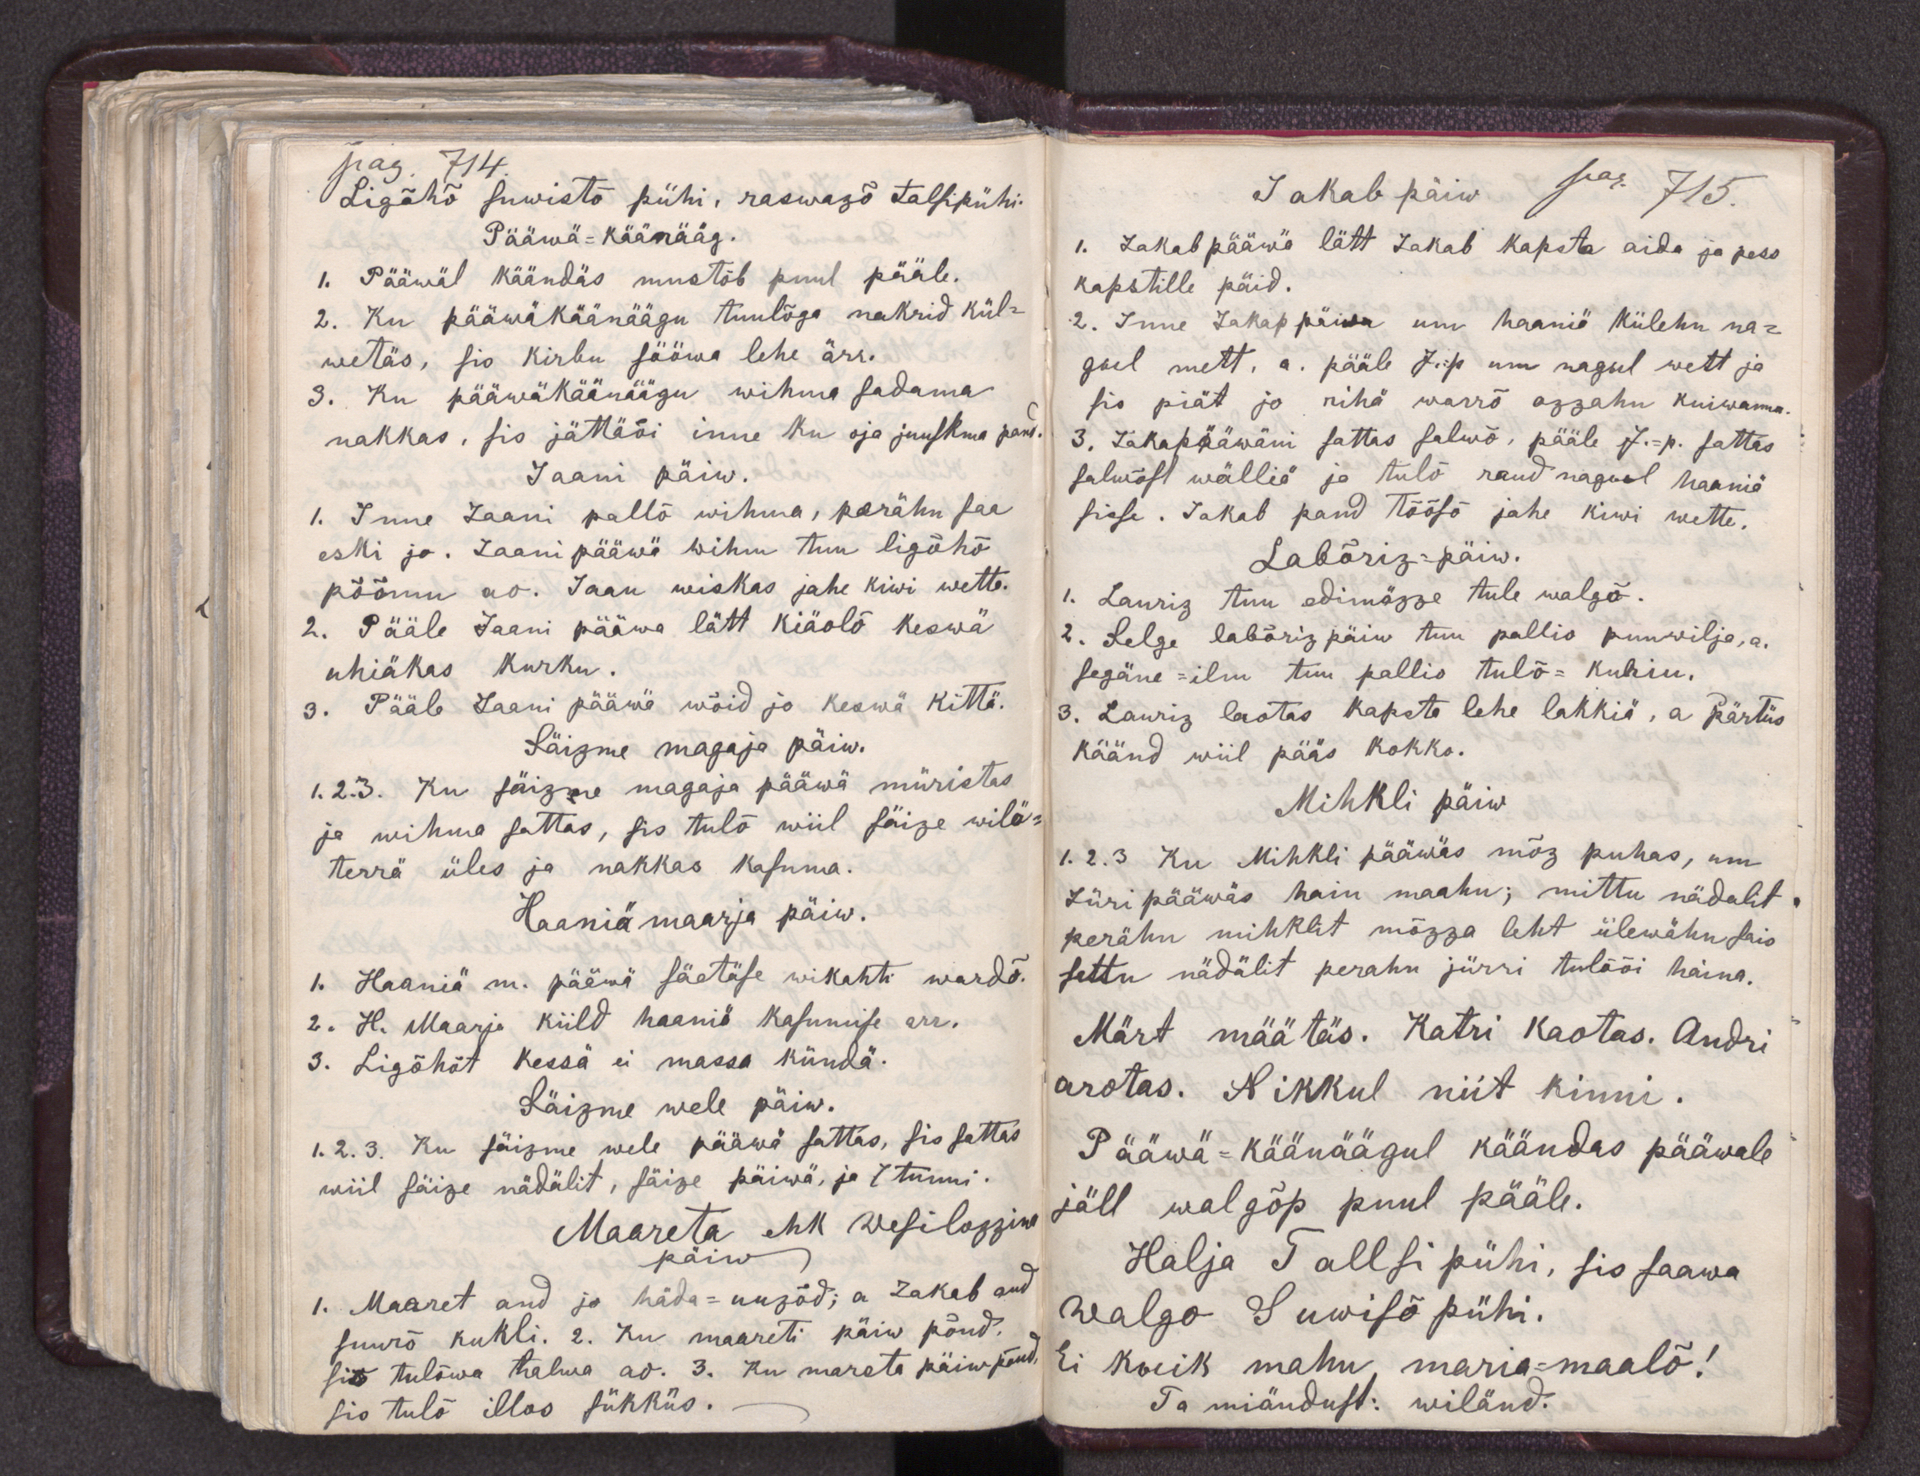 pag. 714.
Ligõhõ suwistõ pühi, raswazõ talsipühi.
Pääwä=käänääg.
1. Pääwäl käändäs mustõb puul pääle.
2. Ku pääwäkäänäägu tuulõga nakrid kül=
wetäs, sis kirbu sööwa lehe ärr.
3. Ku pääwäkäänäägu wihma sadama
nakkas, sis jättäõi inne ku oja juuskma pand.
Jaani päiw.
1. Inne Jaani pallõ wihma, perähn saa
eski jo. Jaani pääwä wihm tuu ligõhõ
põõmu ao. Jaan wiskas jahe kiwi wette.
2. Pääle Jaani pääwa lätt kiäolõ keswä
uhiäkas kurku.
3. Pääle Jaani pääwä wõid jo keswä kittä.
Säizme magaja päiw.
1.2.3. Ku säizme magaja pääwä müristas
ja wihma sattas, sis tulõ wiil säize wilä=
terrä üles ja nakkas kasuma.
Haaniä maarja päiw.
1. Haaniä m. pääwä säetäse wikahti wardõ.
2. H. Maarja küld haaniä kasumise arr.
3. Ligõhõt kessä ei massa kündä.
Säizme wele päiw.
1.2.3. Ku säizme wele pääwä sattas, sis sattas
wiil säize nädälit, säize päiwä, ja 7 tunni.
Maareta ehk Wesilozzine
päiw
1. Maaret and jo häda=uuzõd; a Jakab and
suurõ kukli. 2. Ku maareti päiw põud,
sis tulõwa halwa ao. 3. Ku mareta päiw põud,
sis tulõ illos sükküs.
Jakab päiw pag. 715.
1. Jakabpääwä lätt Jakab kapsta aida ja pess
kapstille päid.
2. Inne Jakap päiwa um haaniä külehn na=
gul mett, a. pääle J.=p um nagul wett ja
sis piät jo rihä warrõ ozzahn kuiwama.
3. Jakapääwäni sattas salwõ, pääle J.=p. sattas
salwõst wälliä ja tulõ raud nagul haaniä
sisse. Jakab pand tõõsõ jahe kiwi wette.
Labõriz=päiw.
1. Lauriz tuu edimäzze tule walgõ.
2. Selge labõriz päiw tuu pallio puuwilja, a.
segäne=ilm tuu pallio tulõ=kuhiu.
3. Lauriz laotas kapsta lehe lakkiä, a Pärtüs
käänd wiil pääs kokko.
Mihkli päiw
1.2.3 Ku Mihkli pääwäs mõz puhas, um
Jüri pääwäs hain maahn; mittu nädalit
perähn mihklit mõzza leht ülewähn sais
settu nädälit perahn jürri tulõõi häina.
Märt määtäs. Katri kaotas. Andri
arotas. Nikkul niit kinni.
Pääwä=käänäägul käändas pääwale
jäll walgõp puul pääle.
Halja Tallsi pühi, sis saawa
walgo Suwisõ pühi.
Ei kõik mahu maria=maalõ!
Ta miändust: wiländ.